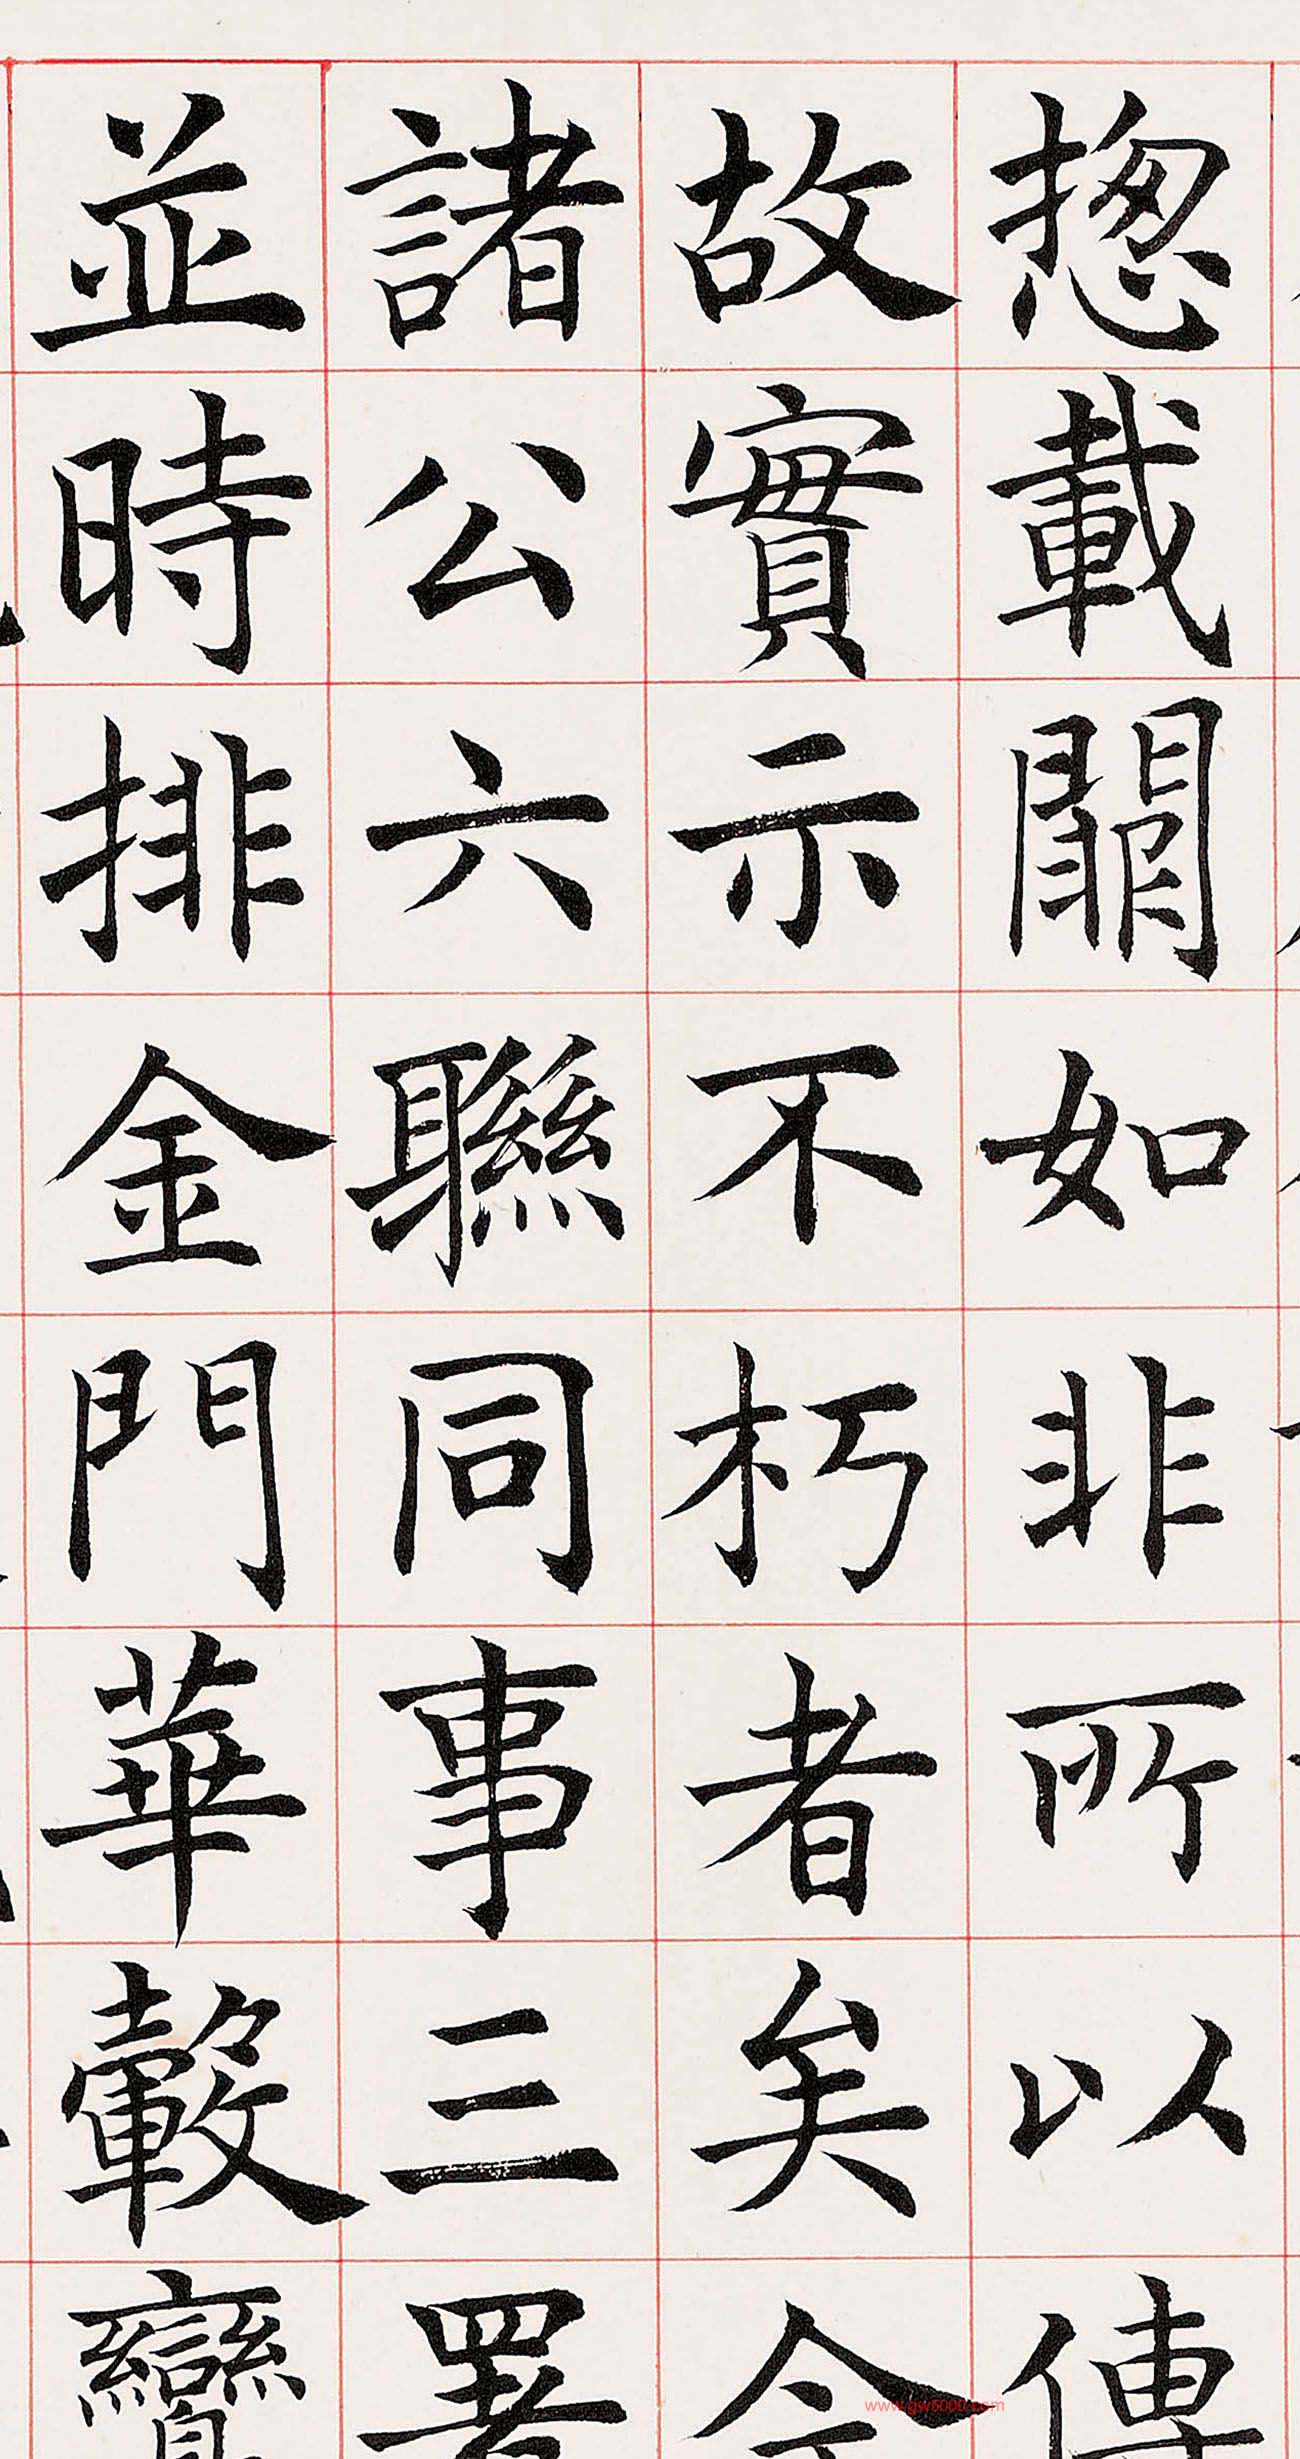 揔載闕如非所以傳
故實示不朽者矣今
諸公六聯同事三署
並時排金門華轂
www.gw5000.com